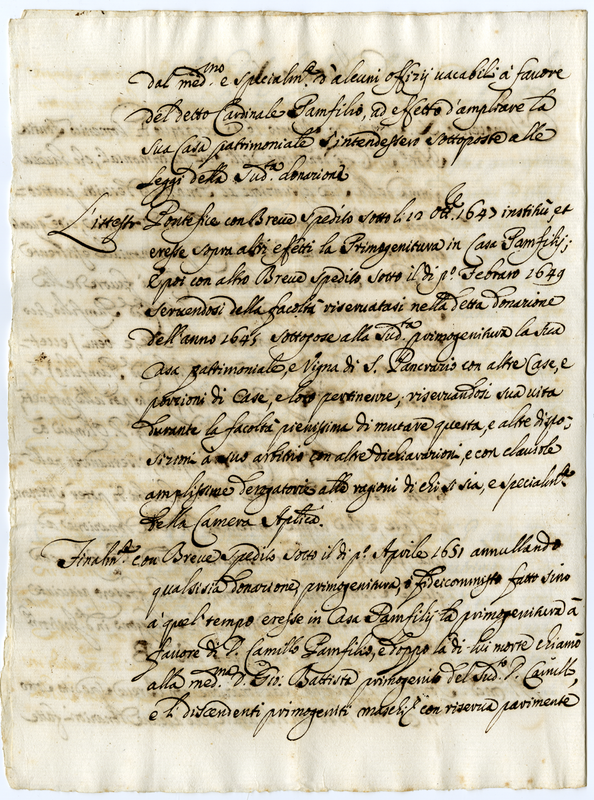 dal med.mo e specialm.te d'alcuni offizij vacabili à favore
del detto Cardinale Pamfilio, ad effetto d'ampliare la
sua Casa patrimoniale s'intendessero sottoposte alle
leggi della sud.ta donazione
L'istesso Pontefice con Breve spedito sotto li 12 Ott.re 1647 instituì, et
eresse sopra altri effetti la Primogenitura in Casa Pamfilij;
E poi con altro Breve spedito sotto il dì p.o Febraro 1649
servendosi della facoltà riservatasi nella detta donazione
dell'anno 1645 sottopose alla sud.ta primogenitura la sua
Casa patrimoniale, e Vigna di S. Pancrazio con altre Case, e
porzioni di Case, e loro pertinenze; riservandosi sua vita
durante la facoltà pienissima di mutare questa, e altre dispo:
sizioni à suo arbitrio con altre dichiarazioni, e con clausole
amplissime derogatorie alle ragioni di chi si sia, e specialm.te
della Camera Aplica.
Finalm.te con Breve spedito sotto il dì p.o Aprile 1651 annullando
qualsisia donazione, primogenitura, ò fideicommisso fatto sino
à quel tempo eresse in Casa Pamfilij la primogenitura à
favore di D. Camillo Pamfilio, e doppo la di lui morte chiamò
alla med.ma D. Gio. Battista primogenito del sud.o D. Camillo,
e li discendenti primogeniti maschij con riserva parimente